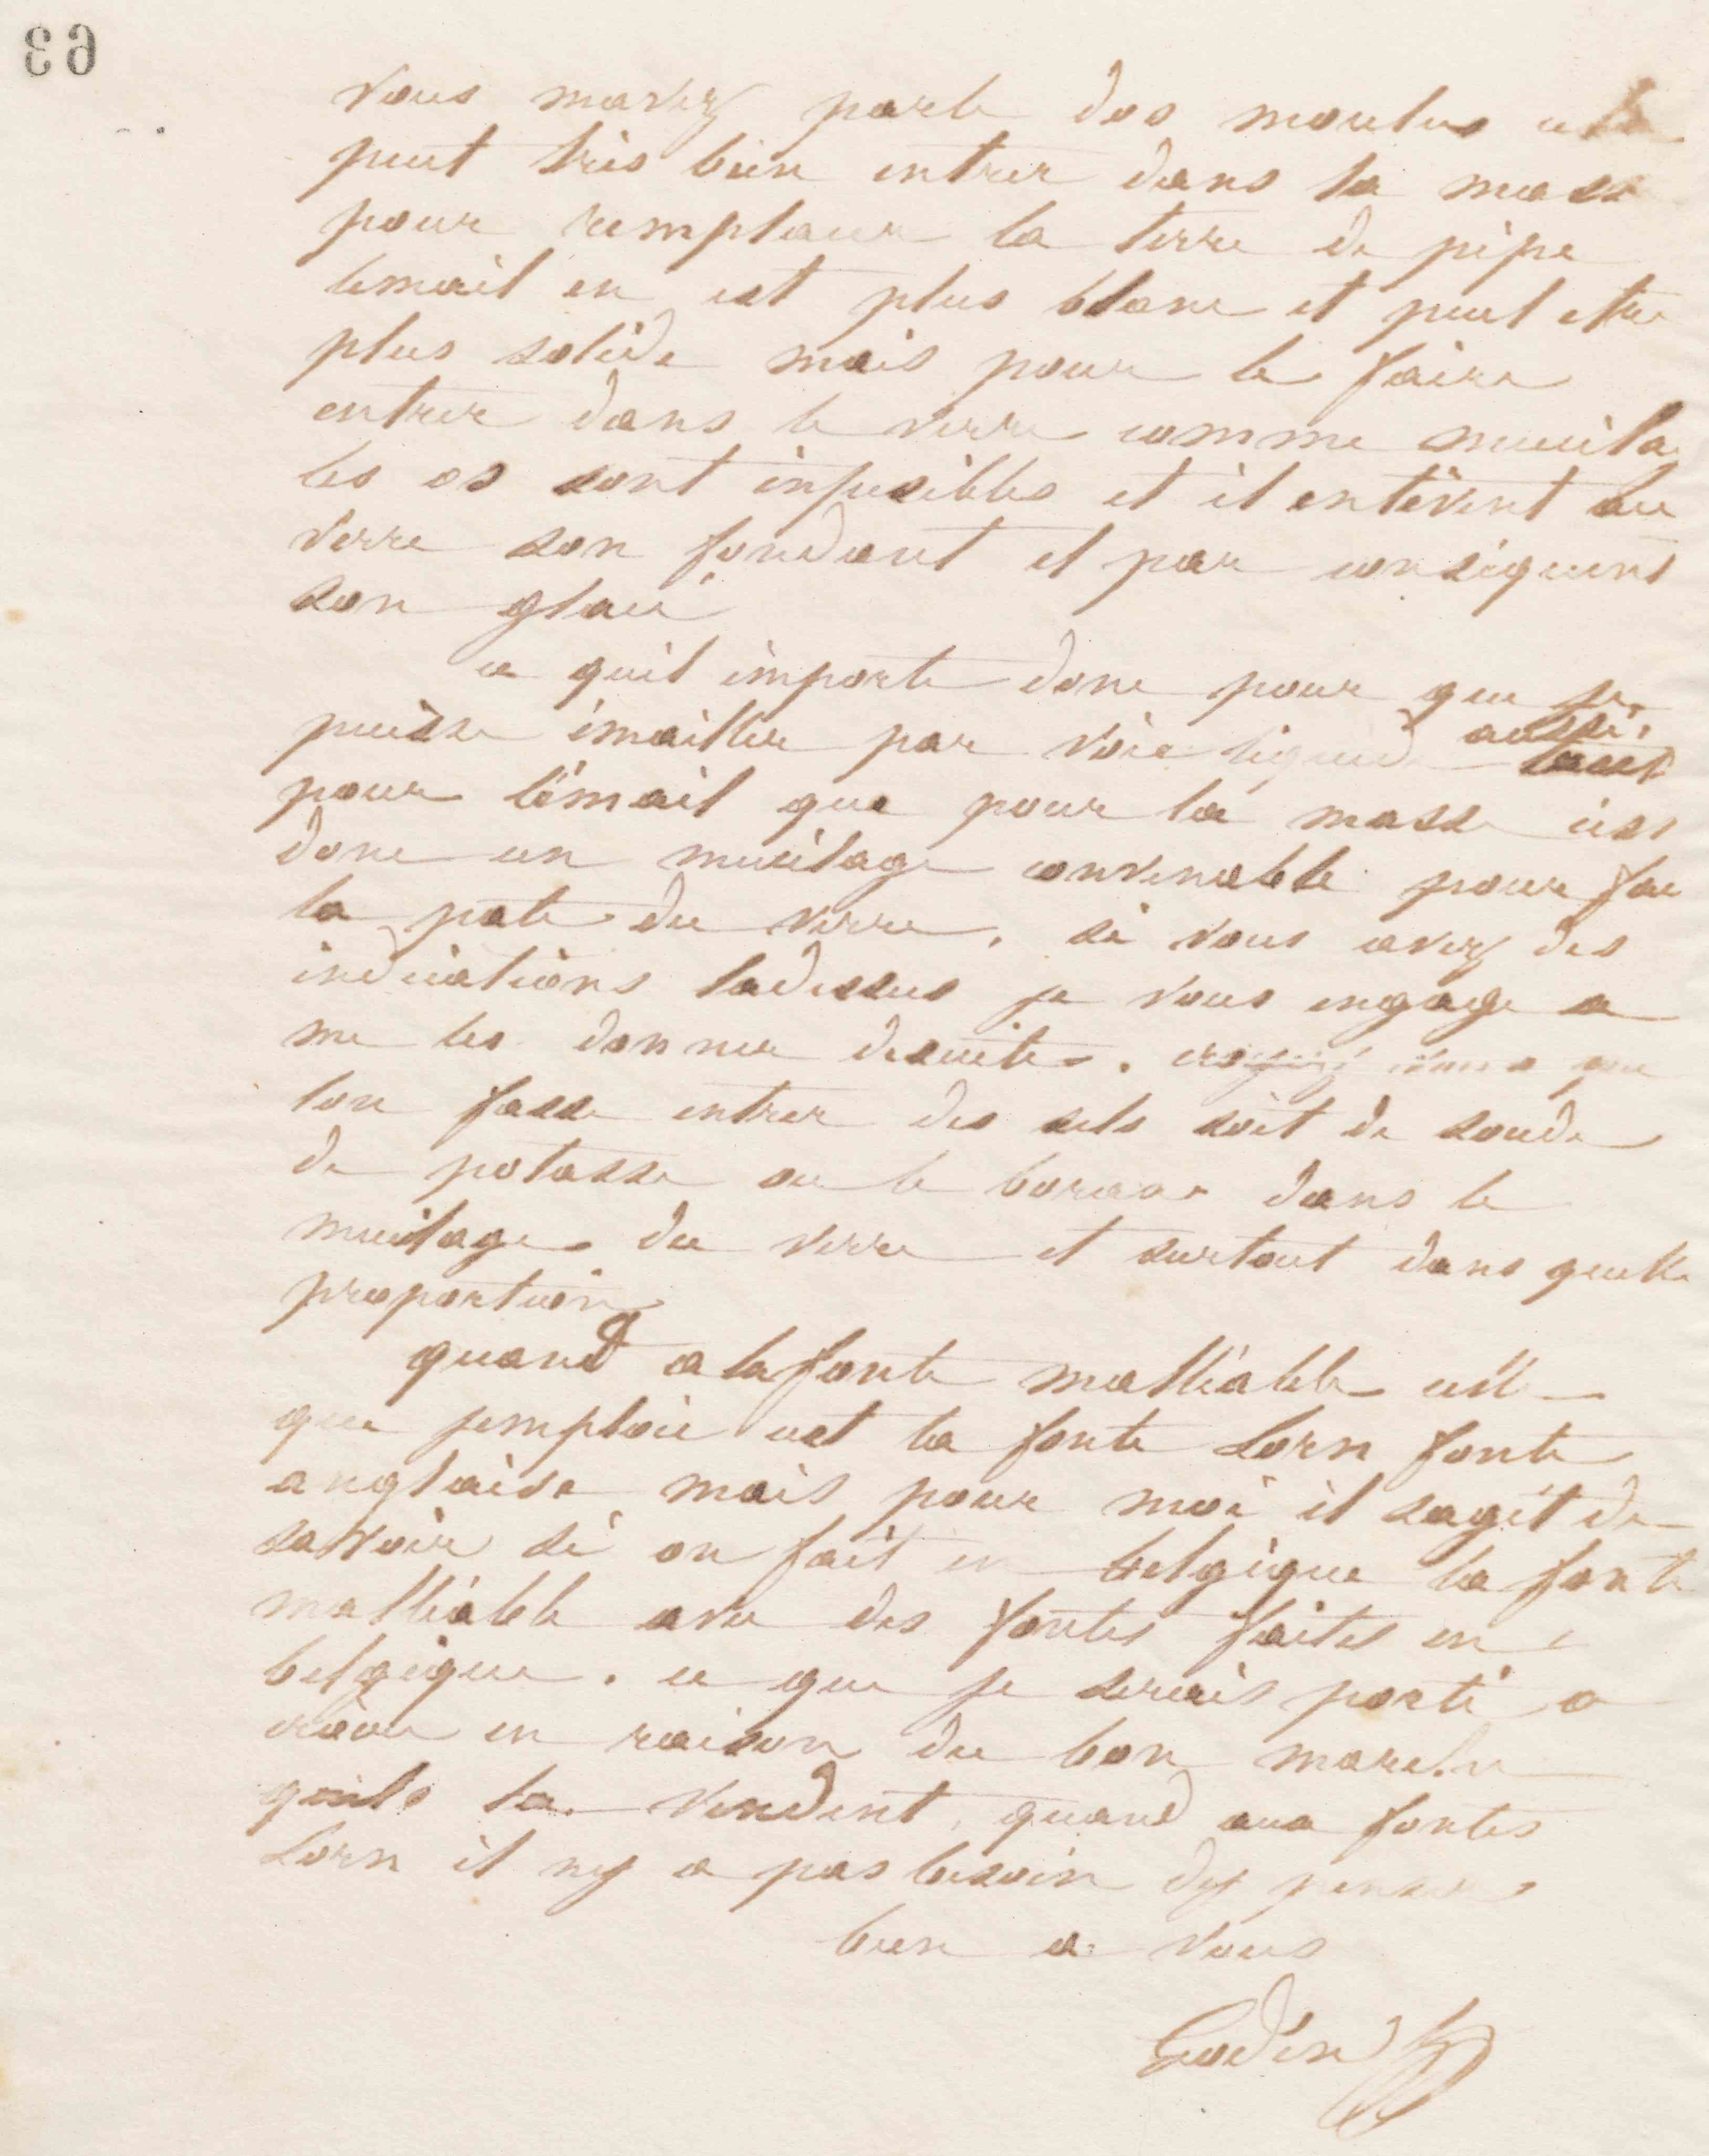 63
vous mavez parle dos moulus cela
peut tres bien entrer dans la masse
pour remplacer la terre de pipe
lemail en est plus blanc et peut etre
plus solide mais pour le faire
entrer dans le verre comme mucila
les os sont infusibles et il enlèvent au
verre son fondant et par conséquent
son glacé
ce quil importe donc pour que je
puisse émailler par voie liquide aussi
pour lémail que pour la masse cest
donc un mucilage convenable pour fai
la pate du verre. si vous avez des
indications ladessus je vous engage a
me les donner desuite. croyez vous que
lon fasse entrer des sels soit de soude
de potasse ou le borax dans le
mucilage du verre et surtout dans quelle
proportion
quand a la fonte malléable celle
que jemploie est la fonte Lorn fonte
anglaise mais pour moi il sagit de
savoir si on fait en belgique la fonte
malléable avec des fontes faites en
belgique. ce que je serais porté a
croire en raison du bon marche
quils la vendent, quand aux fontes
Lorn il ny a pas besoin dy penser
bien a vous
Godin